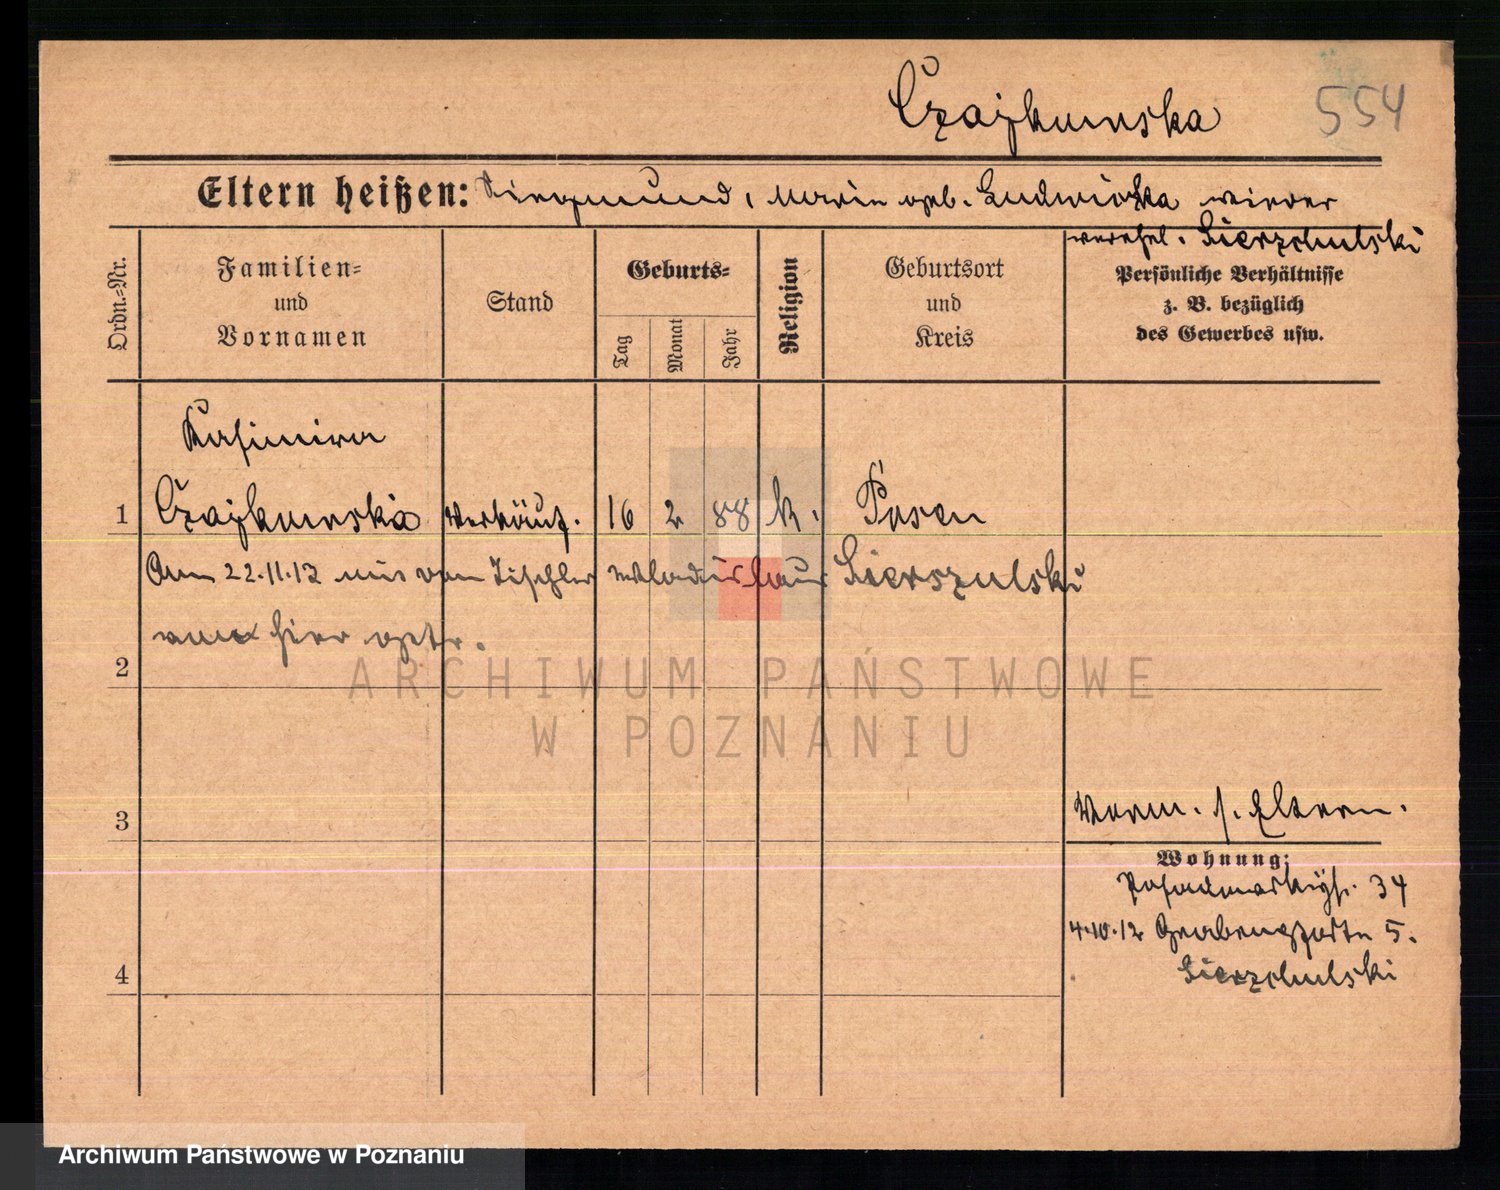 Czajkowska 554
Eltern heißen: Siegmund, Marie geb. Ludwiczka wieder
verehel. Sierzchulski
Ordn.-Nr.
Familien-
und
Vornamen
Stand
Geburts-
Tag
Monat
Jahr
Religion
Geburtsort
und
Kreis
Persönliche Verhältnisse
z. B. bezüglich
des Gewerbes usw.
Kasimira
1 Czajkowska Verkäuf. 16 2 88 k. Posen
Am 22.11.12 mit dem Tischler Wladislaus
hier getr.
2
ARCHIWUM PAŃSTWOWE
W POZNANIU
3
Vorm. s. Eltern.
Wohnung:
Posadowskystr. 34
4.10.12 Grabenpforte 5.
Sierzchulski
4
Archiwum Państwowe w Poznaniu